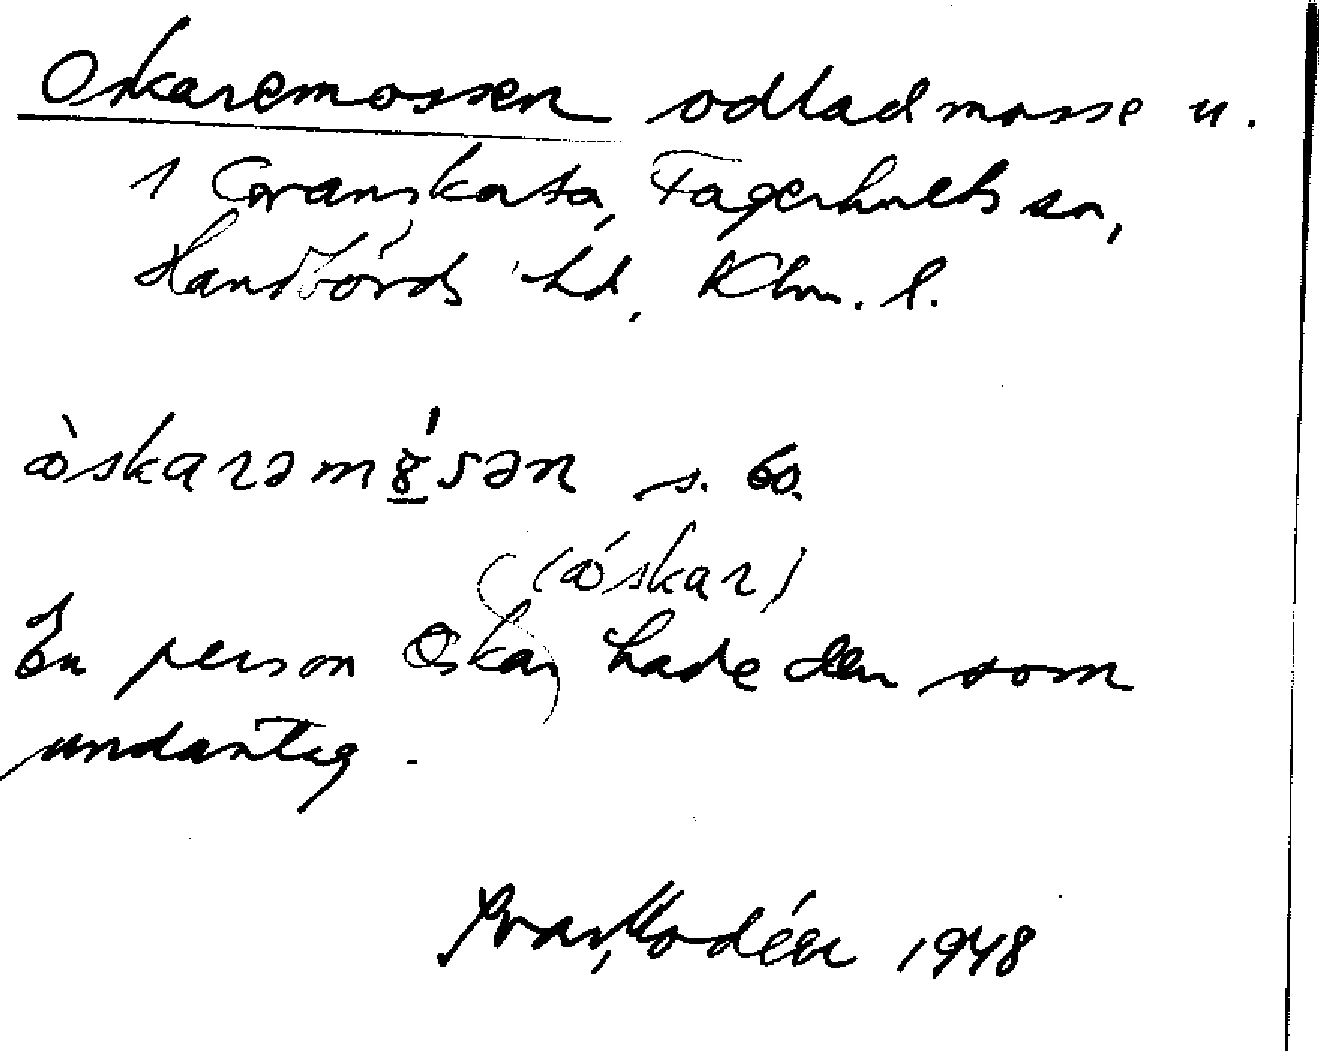 Oskaremossen odlad mosse u.
1 Granskata, Fagerhults sn,
Handbörds hd, Klm. l.
òskarəm8́sən s. 60.
(óskar)
En person Oskar hade den som
undantag.
Ivar Modéer 1948